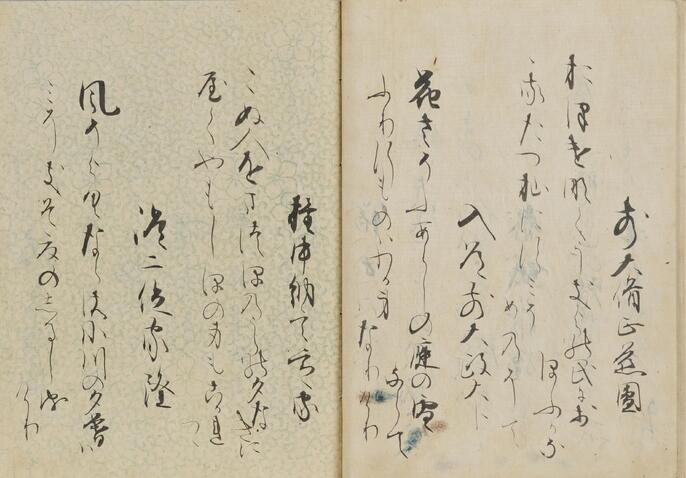 前大僧正慈圓
おほけなくうき世の民にお
ほふかな
わかたつ杣にすみ
そめのそて
入道前大政大臣
花さそふあらしの庭の雪
ならて
ふりゆくものはわか身
なりけり
権中納言定家
こぬ人をまつほのうらの夕なきに
屋くやもしほの身もこかれ
つゝ
従二位家隆
風そよくならの小川の夕暮は
みそきそ夏のしるし
なりけり